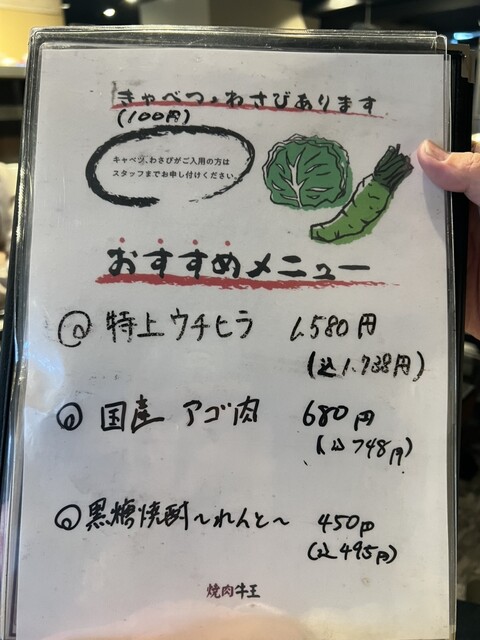 きゃべつ、わさびあります
(100円)
キャベツ、わさびがご入用の方は
スタッフまでお申し付けください。
おすすめメニュー
特上ウチヒラ 1,580円
(込1,738円)
国産 アゴ肉 680円
(込748円)
黒糖焼酎〜れんと〜 450円
(込495円)
焼肉牛王